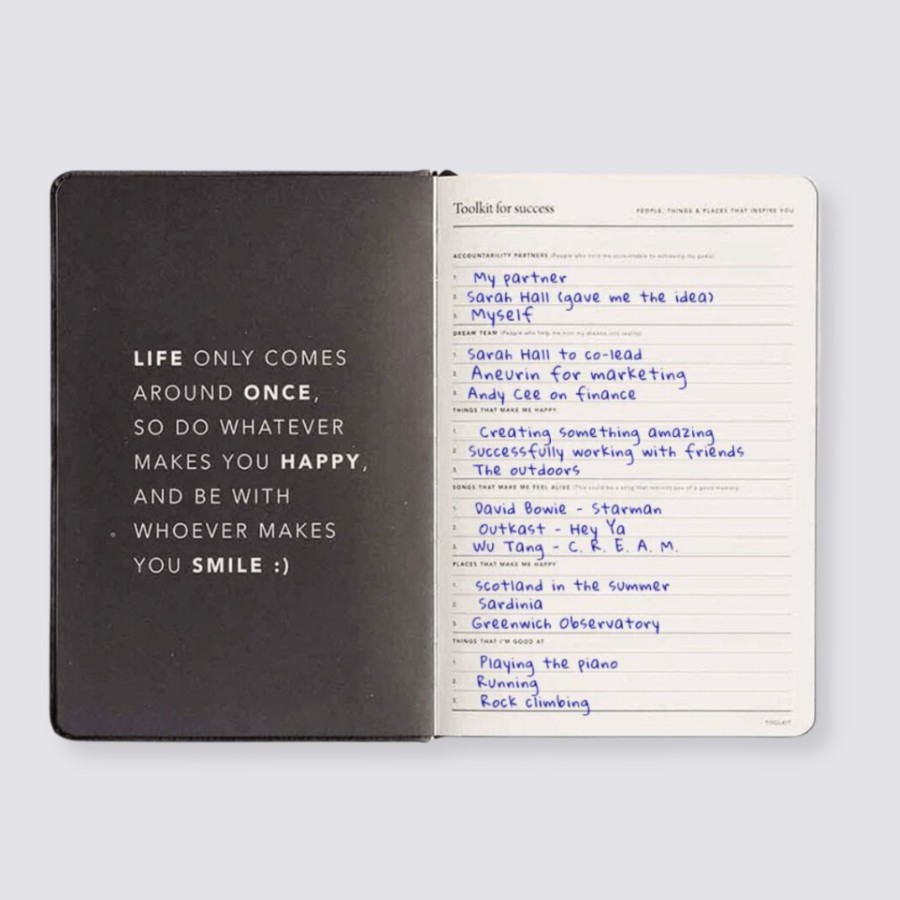 LIFE ONLY COMES
AROUND ONCE,
SO DO WHATEVER
MAKES YOU HAPPY,
AND BE WITH
WHOEVER MAKES
YOU SMILE :)
Toolkit for success
PEOPLE, THINGS & PLACES THAT INSPIRE YOU
ACCOUNTABILITY PARTNERS (People who hold me accountable to achieving my goals)
1. My partner
2. Sarah Hall (gave me the idea)
3. Myself
DREAM TEAM (People who help me turn my dreams into reality)
1. Sarah Hall to co-lead
2. Aneurin for marketing
3. Andy Cee on finance
THINGS THAT MAKE ME HAPPY
1. Creating something amazing
2. Successfully working with friends
3. The outdoors
SONGS THAT MAKE ME FEEL ALIVE (This could be a song that reminds you of a good memory)
1. David Bowie - Starman
2. Outkast - Hey Ya
3. Wu Tang - C. R. E. A. M.
PLACES THAT MAKE ME HAPPY
1. Scotland in the summer
2. Sardinia
3. Greenwich Observatory
THINGS THAT I'M GOOD AT
1. Playing the piano
2. Running
3. Rock climbing
TOOLKIT